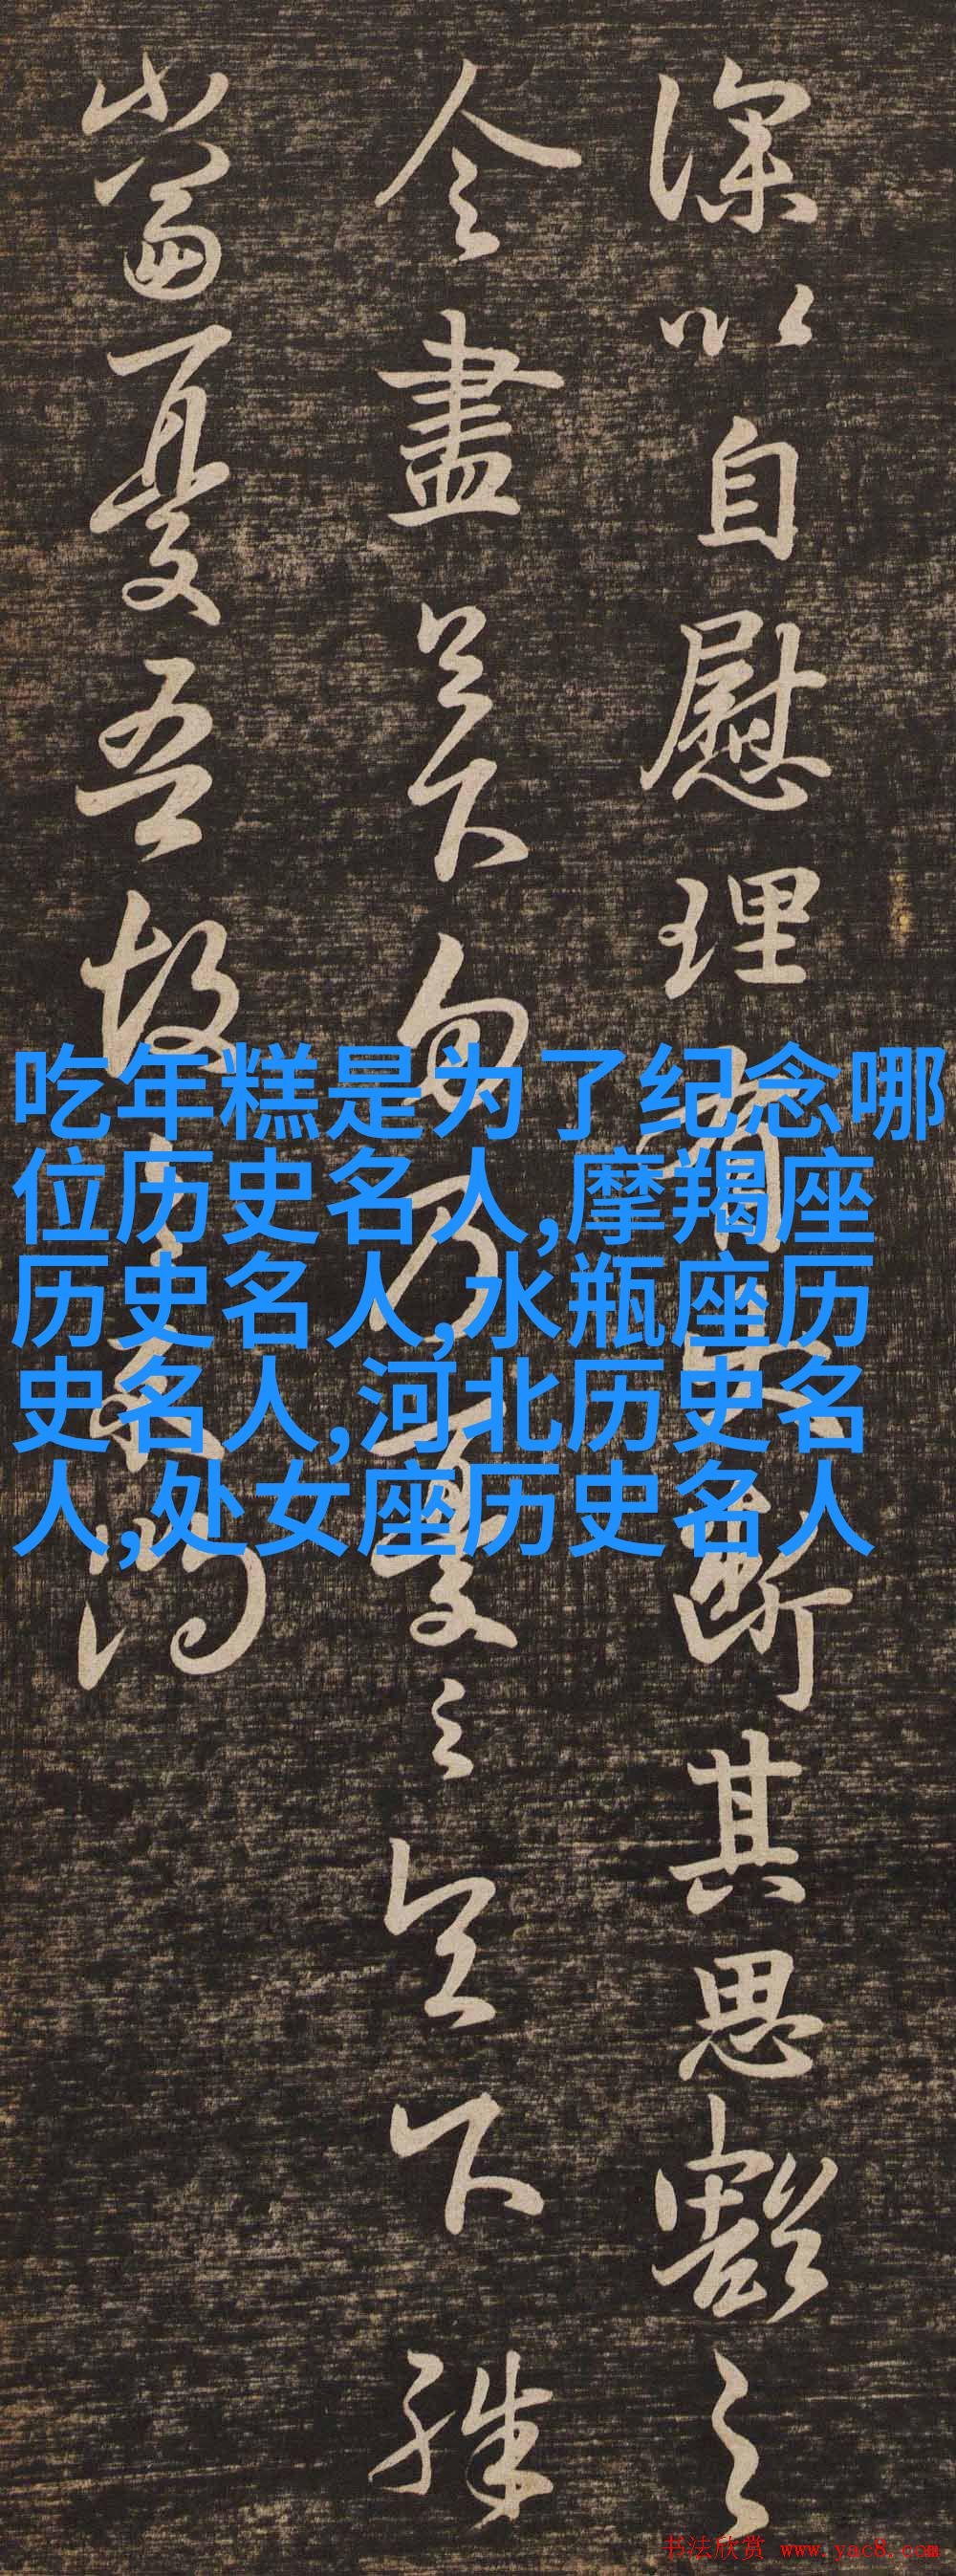 深以自慰理有大斷其思豁之
令盡足下勿乃憂之足下殊
當憂吾故
吃年糕是为了纪念哪
位历史名人,摩羯座
历史名人,水瓶座历
史名人,河北历史名
人,处女座历史名人
书法欣赏 www.yac8.com